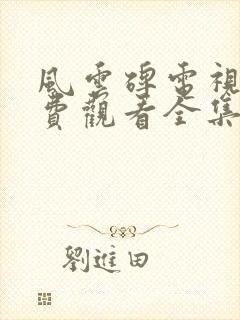 風雲碑電視
費觀看全集
劉進田